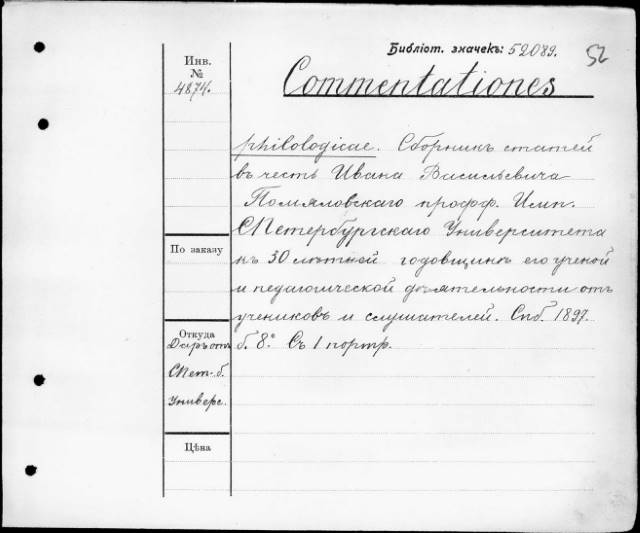 Библіот. значекъ: 52089.
52
Инв.
№
4874.
Commentationes
philologicae. Сборникъ статей
въ честь Ивана Васильевича
Помяловскаго профф. Имп.
СПетербургскаго Университета
къ 30 лѣтней годовщинѣ его ученой
и педагогической дѣятельности отъ
учениковъ и слушателей. Спб. 1897.
б. 8° Съ 1 портр.
По заказу
Откуда
Даръ отъ
СПет. б.
Универс.
Цѣна